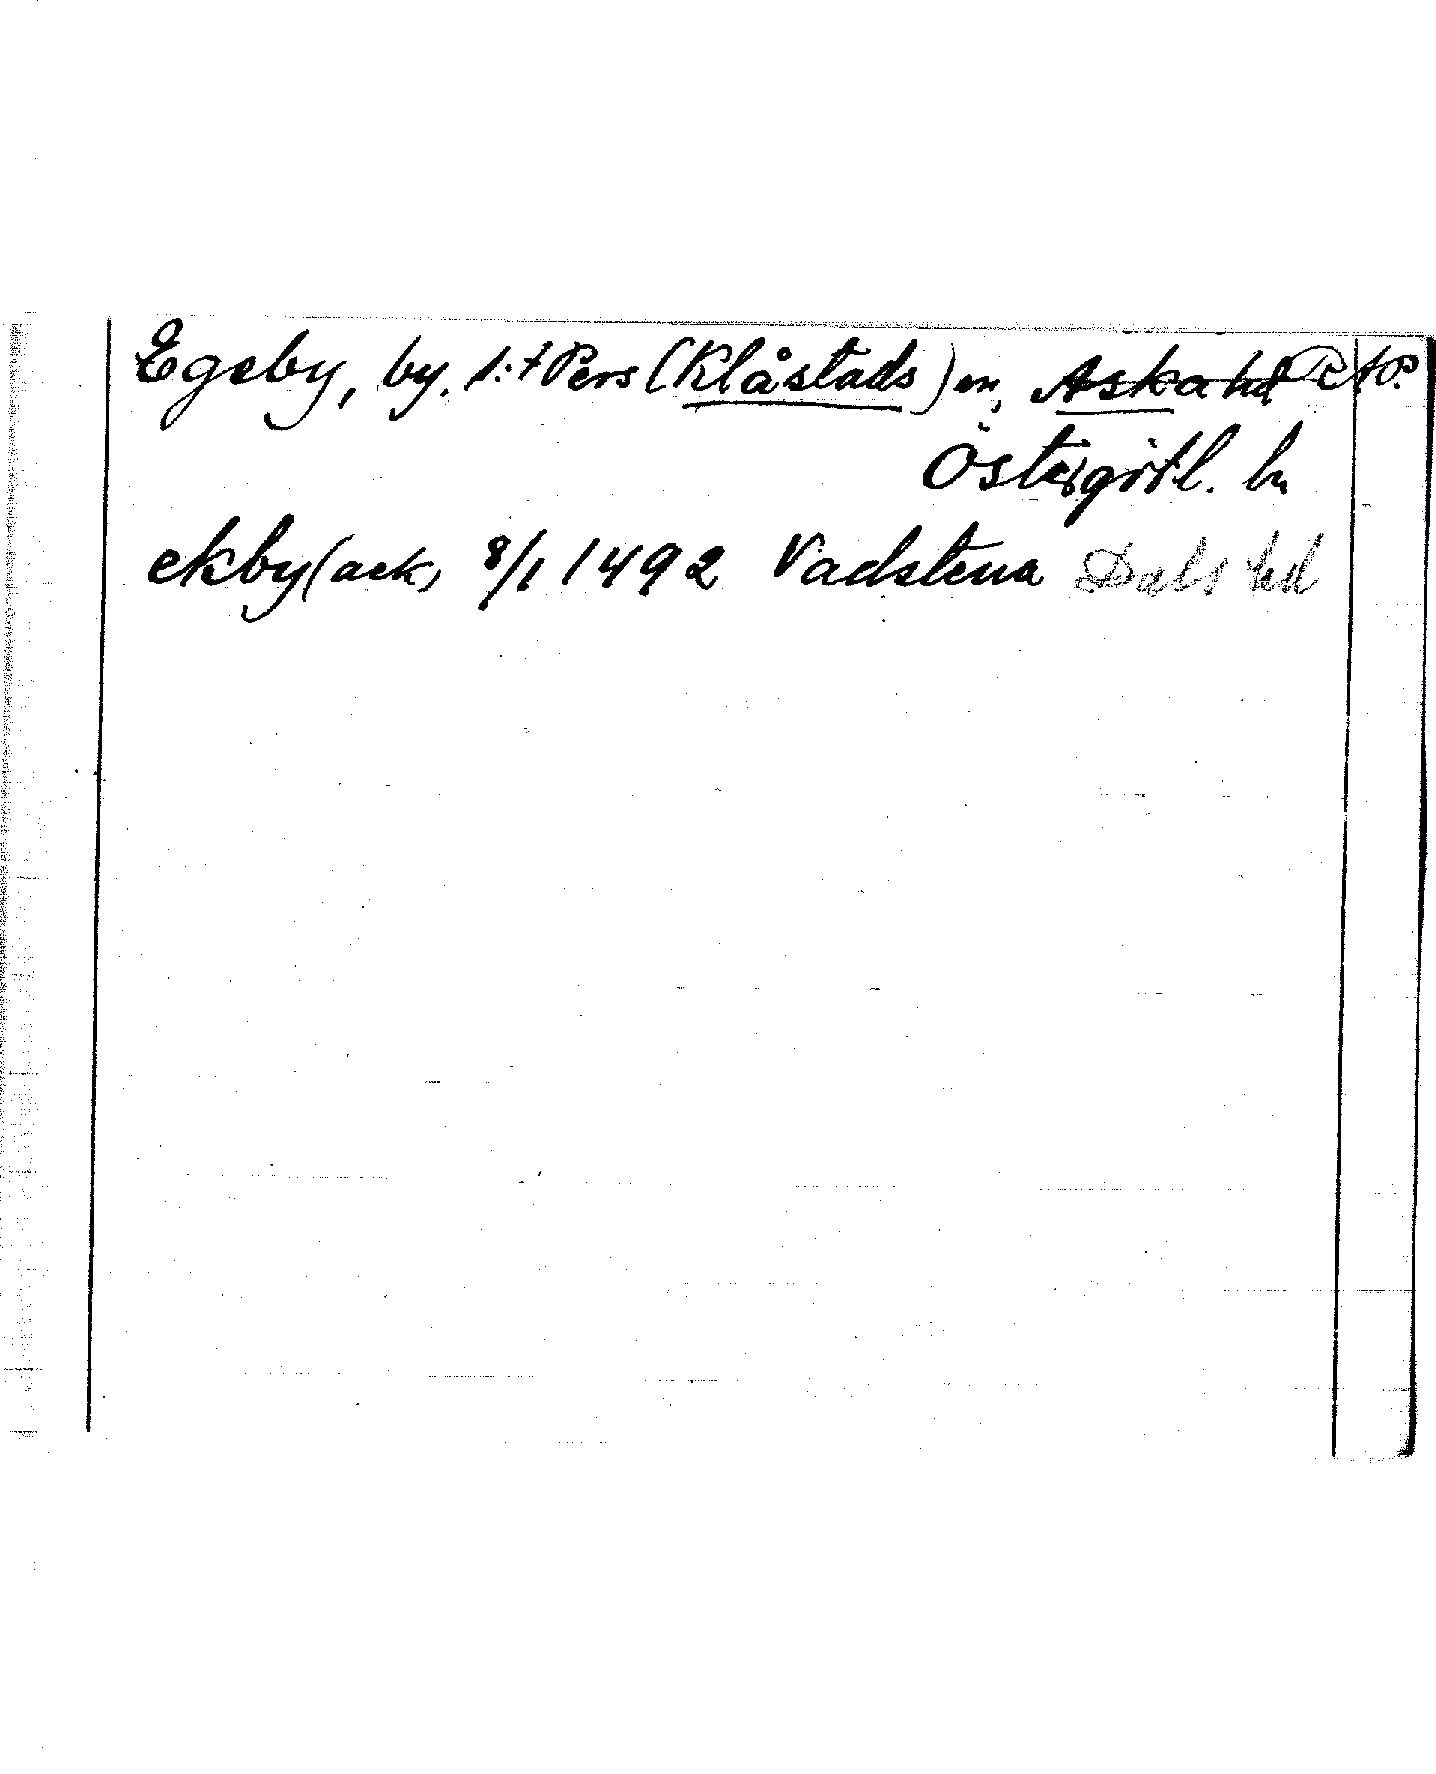 Egeby, by. S:t Pers (Klåstads) sn, Aska hd
Östergötl. ln
ekby (ack) 8/1 1492 Vadstena Dals hd